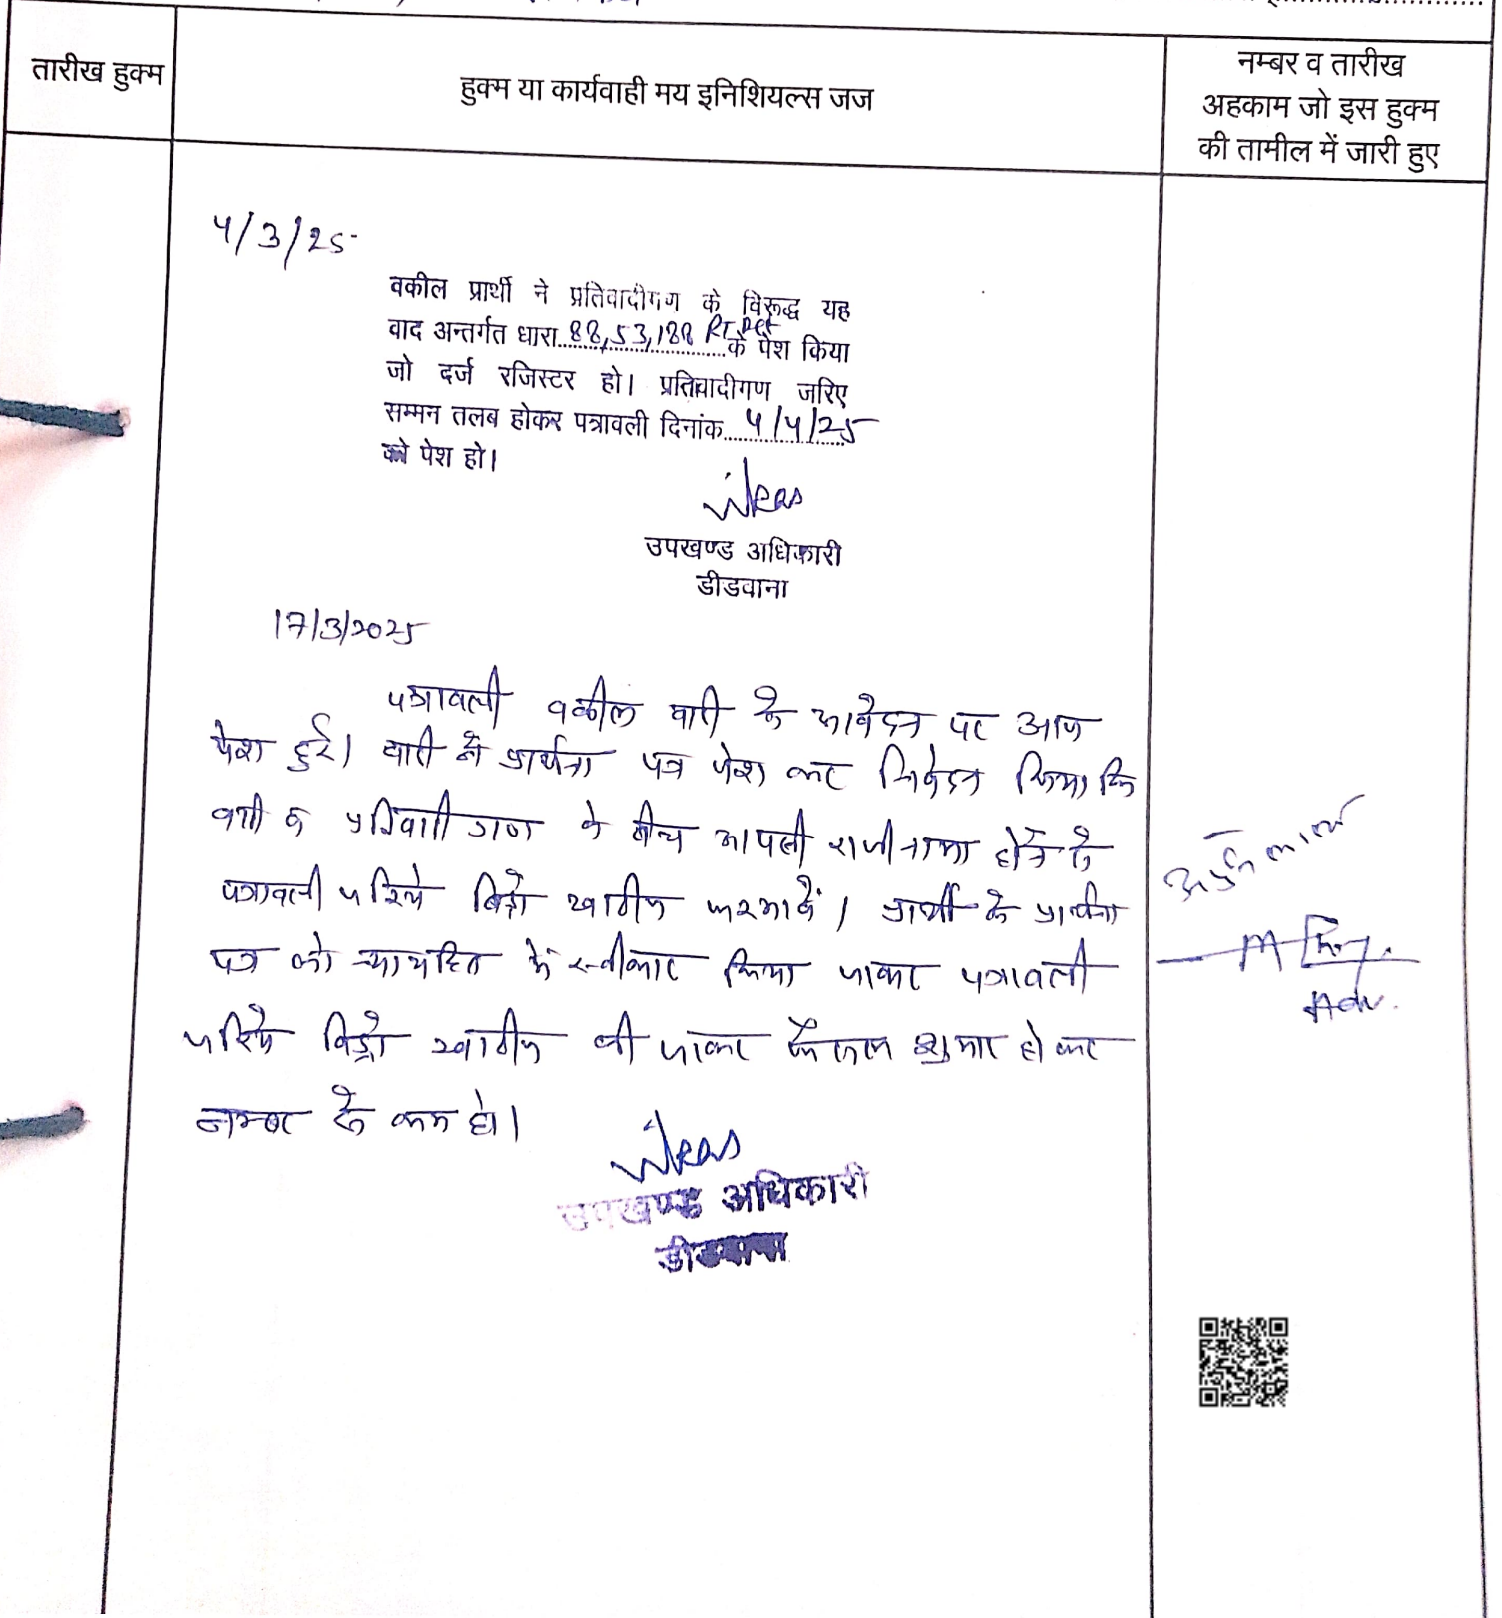 तारीख हुक्म
हुक्म या कार्यवाही मय इनिशियल्स जज
नम्बर व तारीख
अहकाम जो इस हुक्म
की तामील में जारी हुए
4/3/25
वकील प्रार्थी ने प्रतिवादीगण के विरूद्ध यह
वाद अन्तर्गत धारा 88,53,188 RT Act के पेश किया
जो दर्ज रजिस्टर हो। प्रतिवादीगण जरिए
सम्मन तलब होकर पत्रावली दिनांक 4/4/25
को पेश हो।
उपखण्ड अधिकारी
डीडवाना
17/3/2025
पत्रावली वकील वादी के आवेदन पर आज
पेश हुई। वादी ने प्रार्थना पत्र पेश कर निवेदन किया कि
वादी व प्रतिवादीगण के बीच आपसी राजीनामा होने से
पत्रावली जरिये विड्रो खारीज फरमावें। प्रार्थी के प्रार्थना
पत्र को न्यायहित में स्वीकार किया जाकर पत्रावली
जरिये विड्रो खारीज की जाकर फैसल शुमार होकर
नम्बर से कम हो।
Adv.
उपखण्ड अधिकारी
डीडवाना